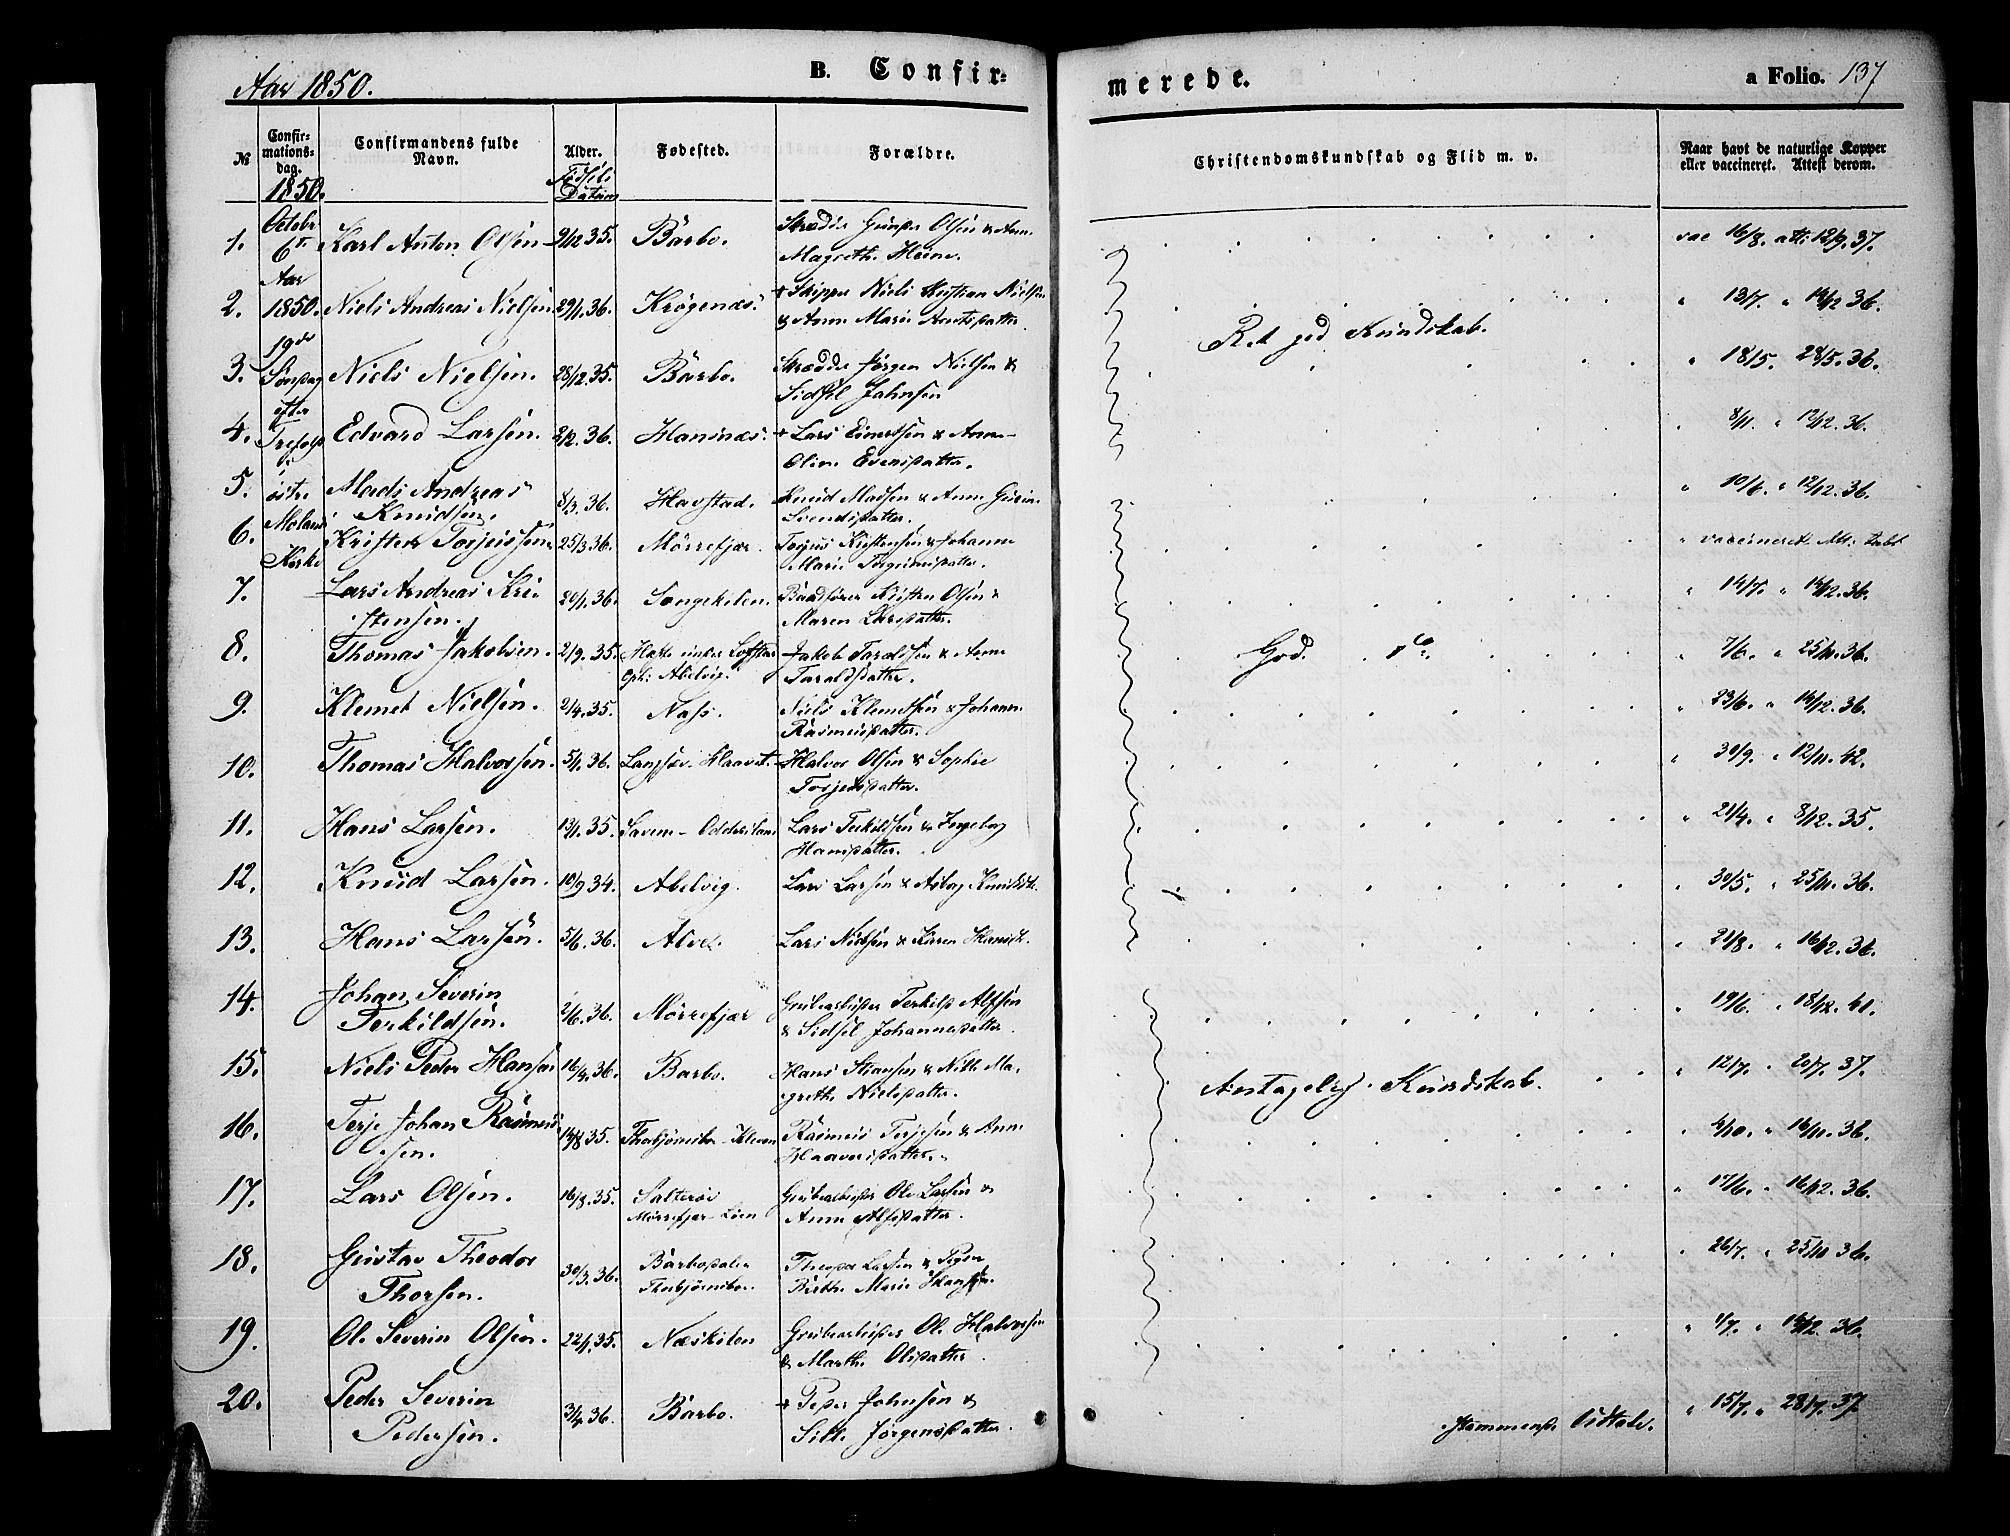 Aar 1850.
B. Confir-
merede.
a Folio. 137
№
Confir-
mations-
dag.
Confirmandens fulde
Navn.
Alder.
Fødsels
Datum
Fødested.
Forældre.
Christendomskundskab og Flid m. v.
Naar havt de naturlige Kopper
eller vaccineret. Attest derom.
1850.
Octobr
6te
Aar
1850.
19de
Søndag
efter
Trefold
i
østre
Molands
Kirke
1. Karl Anton Olsen 9/12 35. Barbo. Skrædder Gunder Olsen & Anne
Magrethe Heine. vac 16/8. att: 12/9. 37.
2. Niels Andreas Nielsen 29/1. 36. Krøgenæs. + Skipper Niels Kristian Nielsen
& Anne Marie Arntsdatter. " 13/7. " 14/12 36.
Ret god Kundskab.
3. Niels Nielsen. 28/12. 35. Barbo. Skrædder Jørgen Nielsen &
Sidsel Jahnsen " 18/5. 28/5. 36.
4. Edvard Larsen. 2/2. 36. Hansnæs. + Lars Einertsen & Anne
Oline Evensdatter. 8/11. " 12/12. 36.
5. Mads Andreas
Knudsen. 8/3. 36. Havstad. Knud Madsen & Anne Gurine
Svendsdatter. " 10/6. " 12/12. 36.
6. Kristen Torjussen 25/3 36. Mørrefjær. Torjus Kristensen & Johanne
Marie Torgrimsdatter. " vaccineret Att:
7. Lars Andreas Kri-
stensen. 20/1. 36. Songekilen. Baadfører Kristen Olsen &
Maren Larsdatter. " 14/7. " 14/12. 36.
8. Thomas Jakobsen. 2/9. 35. Abelvig. Jakob Taraldsen & Anne
Taraldsdatter. God do. " 7/6. " 25/11. 36.
9. Klemet Nielsen. 2/4. 35. Næs. Niels Klemetsen & Johanne
Rasmusdatter. " 23/6. " 14/12. 36.
10. Thomas Halvorsen. 5/1. 36. Langsæv. Halvor Olsen & Sophie
Torjersdatter. " 30/9. " 12/11. 42.
11. Hans Larsen. 13/1. 35. Lars Terkildsen & Ingeborg
Hansdatter. " 21/4. " 8/12. 35.
12. Knud Larsen. 10/9 34. Abelvig. Lars Larsen & Asborg Knudsd. " 30/5. " 25/11. 36.
13. Hans Larsen. 5/6. 36. Alve. Lars Nielsen & Karen Hansd. " 21/8. " 16/12. 36.
14. Johan Severin
Terkildsen. 2/6. 36. Mørrefjær Grubearbeider Terkild Alfsen
& Sidsel Johannesdatter. " 19/6. " 18/12. 41.
15. Niels Peder Hansen 16/4. 36. Barbo. Hans Stiansen & Nille Ma-
grethe Nielsdatter. Antagelig Kundskab. " 12/7. " 20/7. 37.
16. Terje Johan Rasmus-
sen. 14/8 35. Thorbjørnsbo - Kleven Rasmus Terjesen & Anne
Haavorsdatter. " 4/10. " 16/11. 36.
17. Lars Olsen. 16/8. 35. Salterøe
Mørrefjær Grubearbeider Ole Larsen &
Anne Alfsdatter. " 17/6. " 16/12. 36.
18. Gustav Theodor
Thorsen. 30/3. 36. Barbodalen
Thorbjørnsbo. Theodor Larsen & Pigen
Birthe Marie Hansen. " 26/7. " 25/10 36.
19. Ole Severin Olsen. 22/1. 35. Næskilen Grubearbeider Ole Halvorsen
& Marthe Olsdatter. " 4/7. " 14/12. 36.
20. Peder Severin
Pedersen. 3/4. 36. Barbo. + Peder Johnsen &
Sille Jørgensdatter. Stammende Udtale. " 15/7. " 28/7. 37.